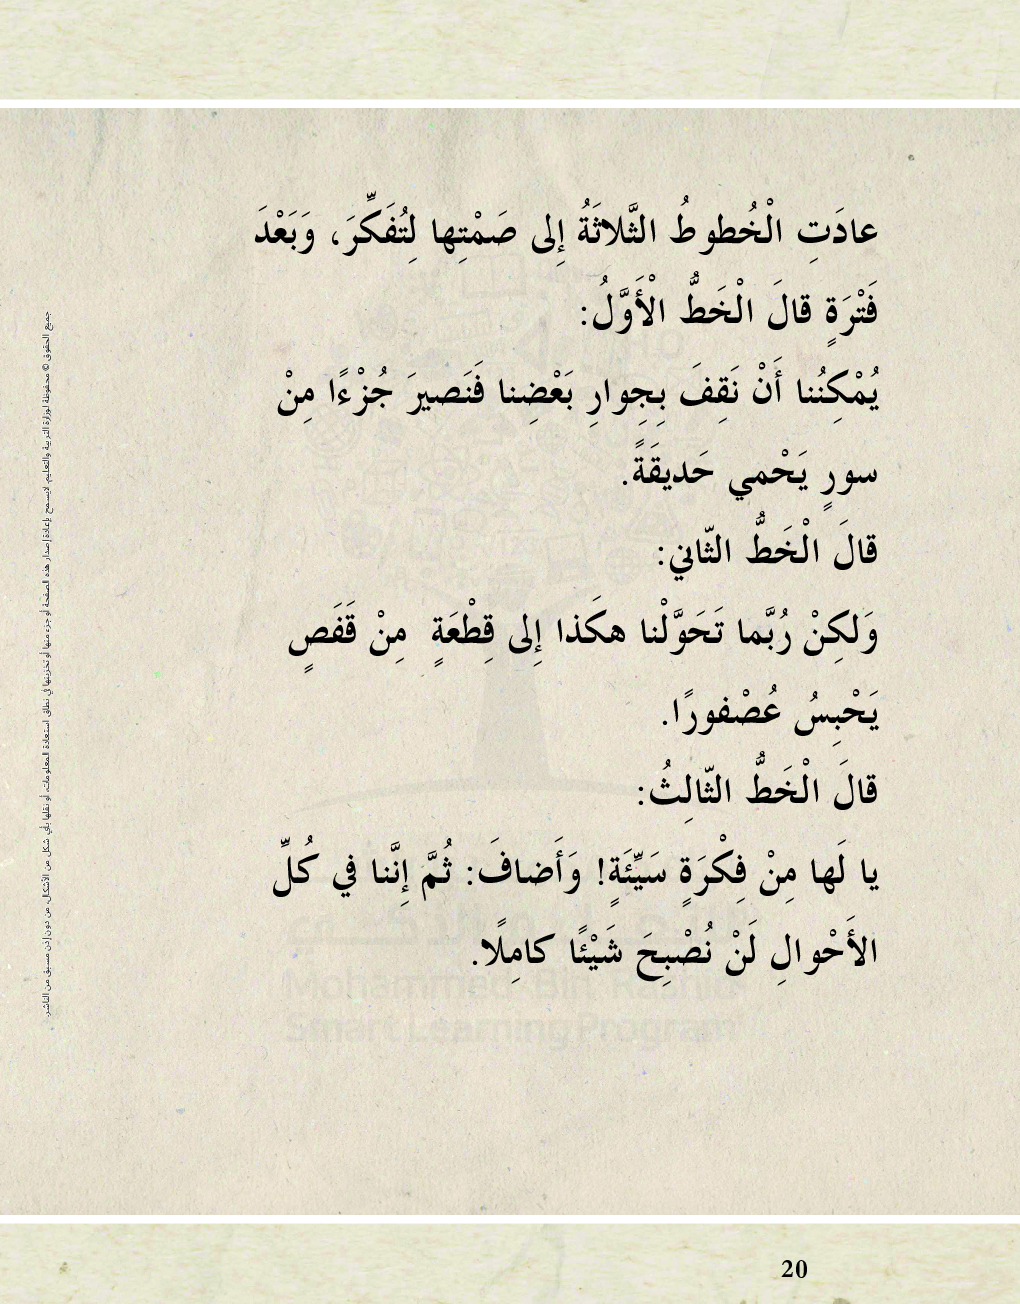 عادَتِ الْخُطوطُ الثَّلاثَةُ إِلى صَمْتِها لِتُفَكِّرَ، وَبَعْدَ
فَتْرَةٍ قالَ الْخَطُّ الْأَوَّلُ:
يُمْكِنُنا أَنْ نَقِفَ بِجِوارِ بَعْضِنا فَنَصيرَ جُزْءًا مِنْ
سورٍ يَحْمي حَديقَةً.
قالَ الْخَطُّ الثّاني:
وَلكِنْ رُبَّما تَحَوَّلْنا هكَذا إِلى قِطْعَةٍ مِنْ قَفَصٍ
يَحْبِسُ عُصْفورًا.
قالَ الْخَطُّ الثّالِثُ:
يا لَها مِنْ فِكْرَةٍ سَيِّئَةٍ! وَأَضافَ: ثُمَّ إِنَّنا في كُلِّ
الأَحْوالِ لَنْ نُصْبِحَ شَيْئًا كامِلًا.
Mohammed Bin Rashid
Smart Learning Program
جميع الحقوق © محفوظة لوزارة التربية والتعليم. لايسمح بإعادة إصدار هذه الصفحة أو جزء منها أو تخزينها في نطاق استعادة المعلومات، أو نقلها بأي شكل من الأشكال، من دون إذن مسبق من الناشر.
20